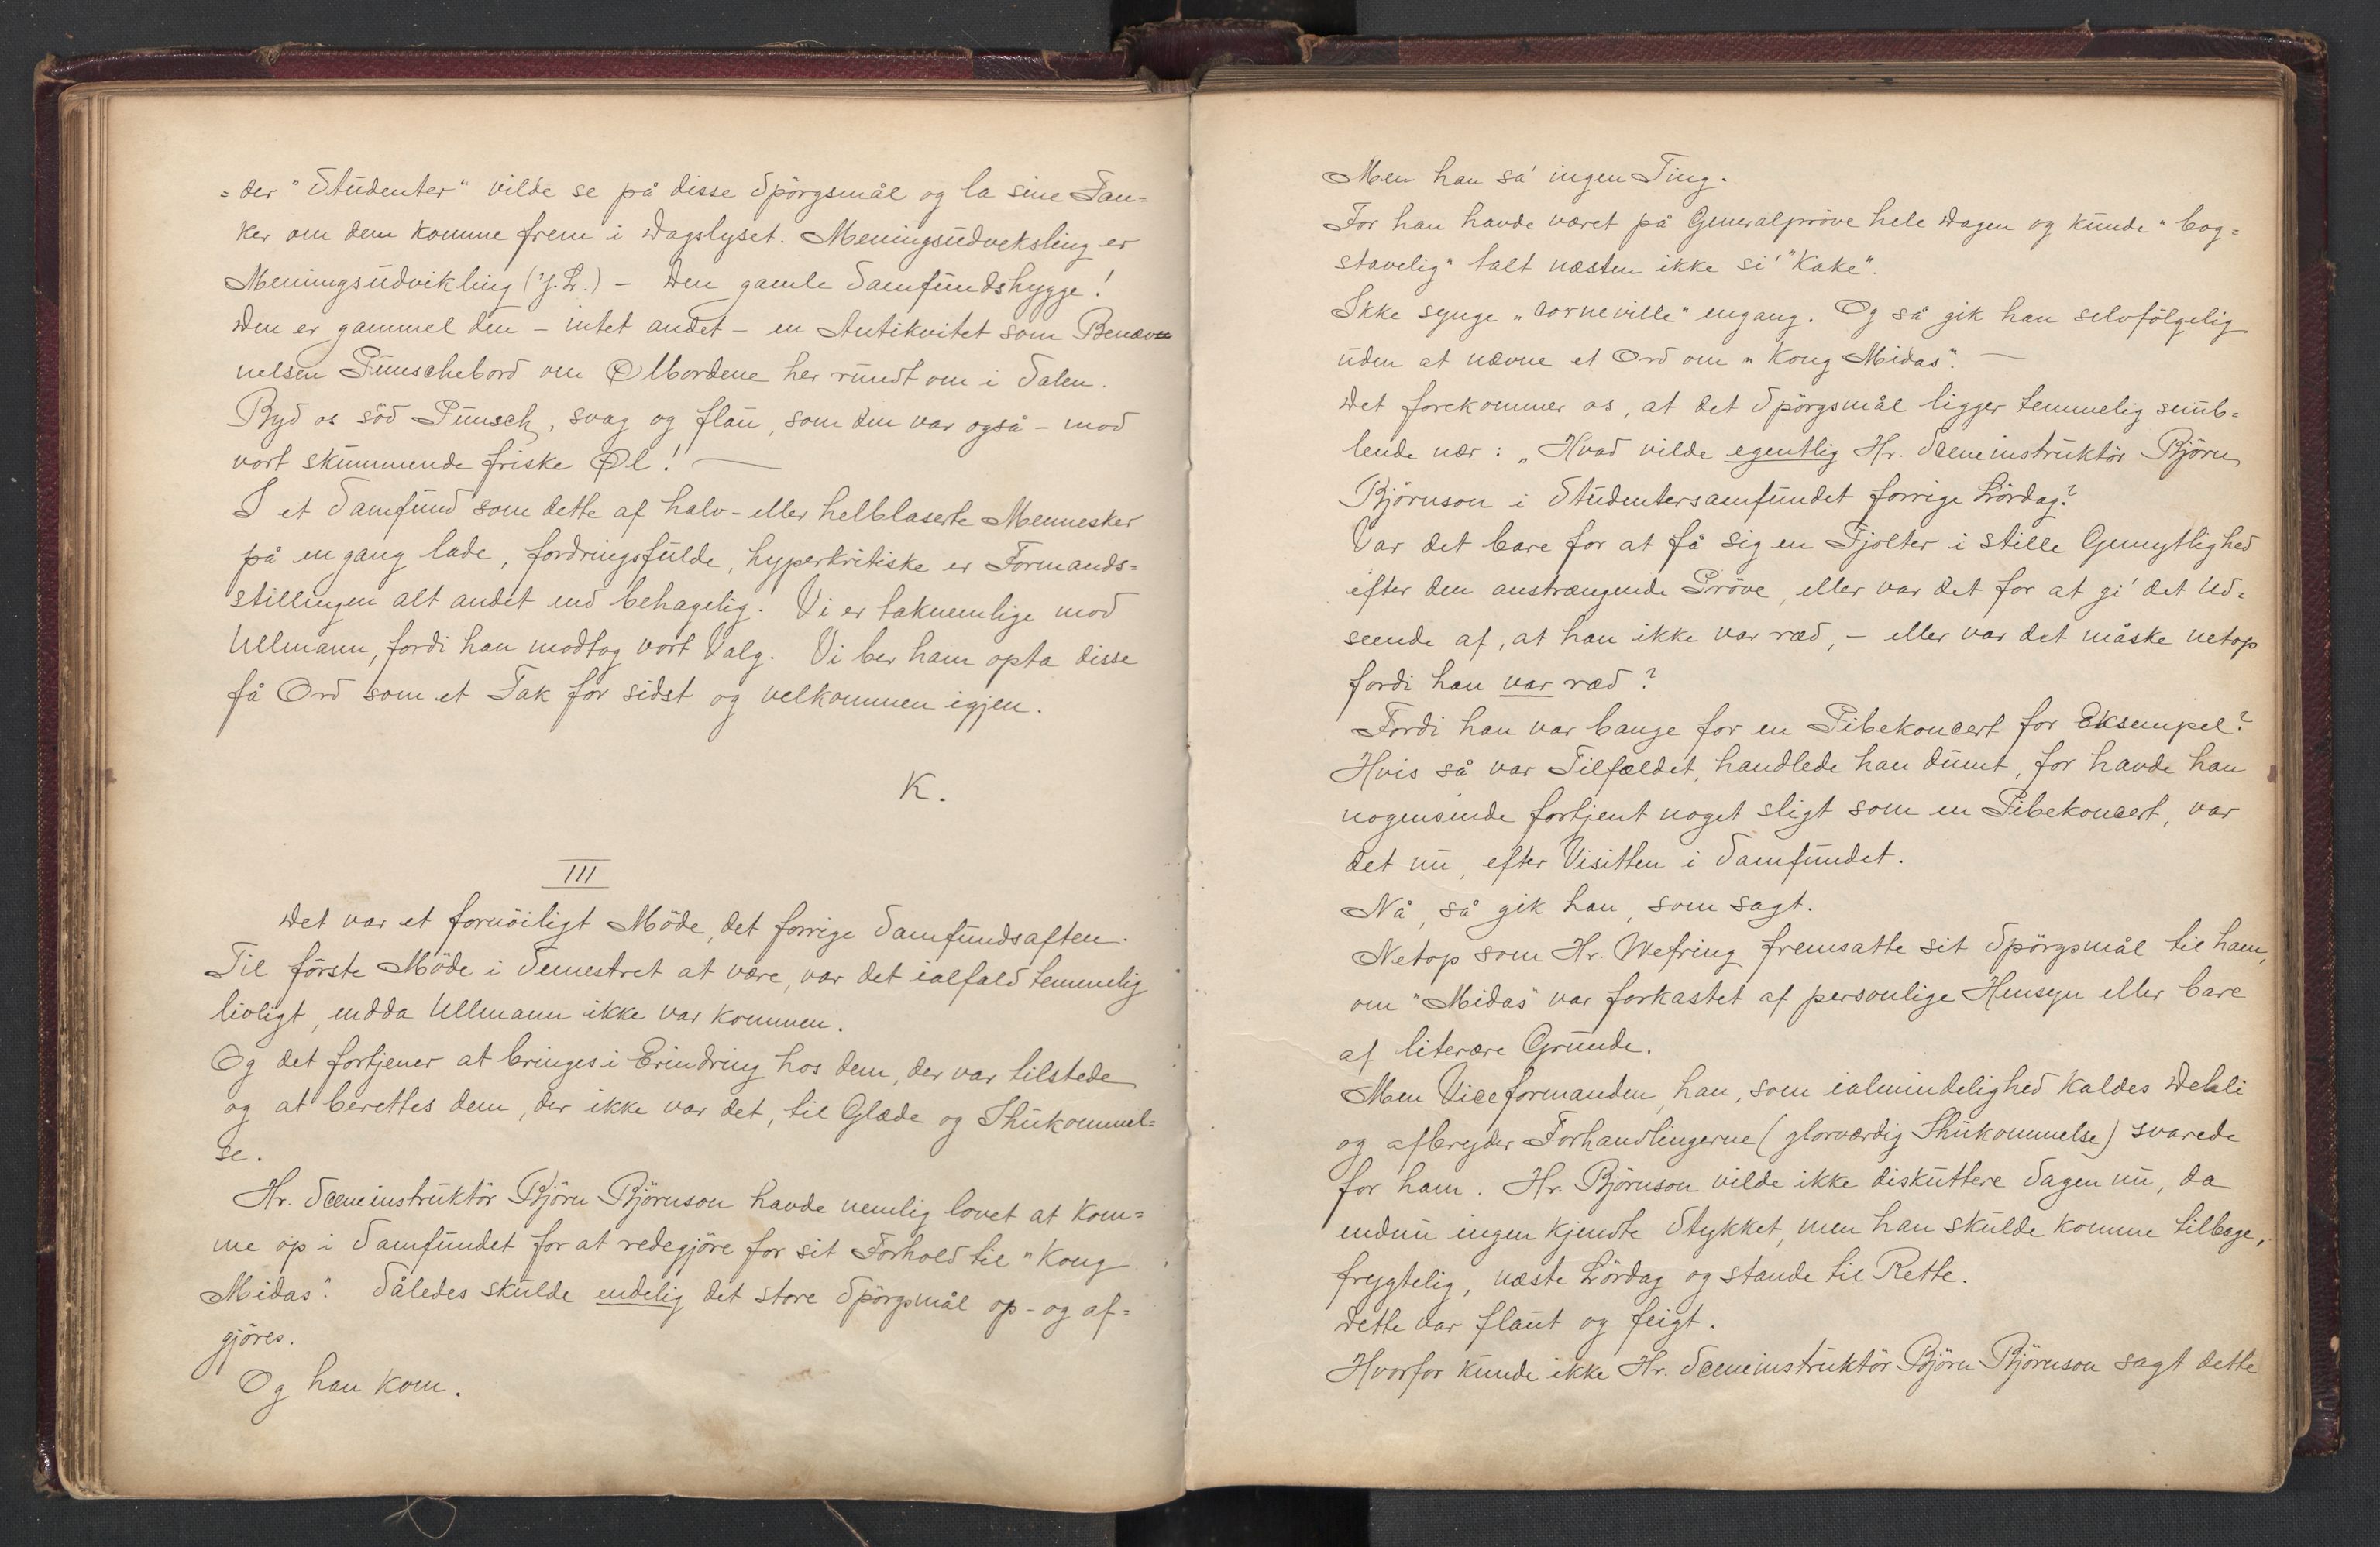 = der "Studenter" vilde se på disse Spörgsmål og la sine Tan=
ker om dem komme frem i Dagslyset. Meningsudveksling er
Meningsudvikling (J. L.) - Den gamle Samfundshygge!
Den er gammel den - intet andet - en Antikvitet som Benæv
nelsen Punschebord om Ølbordene her rundt om i Salen.
Byd os söd Punsch, svag og flau, som den var også - mod
vort skummende friske Øl! —
I et Samfund som dette af halv- eller helblaserte Mennesker
på en gang lade, fordringsfulde, hyperkritiske er Formands=
stillingen alt andet end behagelig. Vi er taknemlige mod
Ullmann, fordi han modtog vort Valg. Vi ber ham opta disse
få Ord som et Tak for sidst og velkommen igjen.
K.
III
Det var et fornöiligt Möde, det forrige Samfundsaften.
Til förste Möde i Semestret at være, var det ialfald temmelig
livligt, endda Ullmann ikke var kommen.
Og det fortjener at bringes i Erindring hos dem, der var tilstede
og at berettes dem, der ikke var det, til Glæde og Ihukommel=
se.
Hr. Sceneinstruktör Björn Björnson havde nemlig lovet at kom=
me op i Samfundet for at redegjöre for sit Forhold til "Kong
Midas". Således skulde endelig det store Spörgsmål op- og af=
gjöres.
Og han kom.
Men han sa' ingen Ting.
For han havde været på Generalpröve hele Dagen og kunde "bog=
stavelig" talt næsten ikke si' "Kake".
Ikke synge "Corneville" engang. Og så gik han selvfölgelig
uden at nævne et Ord om "Kong Midas". —
Det forekommer os, at det Spörgsmål ligger temmelig snub=
lende nær: "Hvad vilde egentlig Hr. Sceneinstruktör Björn
Björnson i Studentersamfundet forrige Lördag?
Var det bare for at få sig en Pjolter i stille Gemytlighed
efter den anstrængende Pröve, eller var det for at gi' det Ud=
seende af, at han ikke var ræd, - eller var det måske netop
fordi han var ræd?
Fordi han var bange for en Pibekoncert for Eksempel?
Hvis så var Tilfældet, handlede han dumt, for havde han
nogensinde fortjent noget sligt som en Pibekoncert, var
det nu, efter Visitten i Samfundet.
Nå, så gik han, som sagt.
Netop som Hr. Wefring fremsatte sit Spörgsmål til ham,
om "Midas" var forkastet af personlige Hensyn eller bare
af literære Grunde.
Men Viceformanden, han, som ialmindelighed kaldes Dehli
og afbryder Forhandlingerne (glorværdig Ihukommelse) svarede
for ham. Hr. Björnson vilde ikke diskuttere Sagen nu, da
endnu ingen kjendte Stykket, men han skulde komme tilbage,
frygtelig, næste Lördag og stande til Rette.
Dette var flaut og feigt.
Hvorfor kunde ikke Hr. Sceneinstruktör Björn Björnson sagt dette